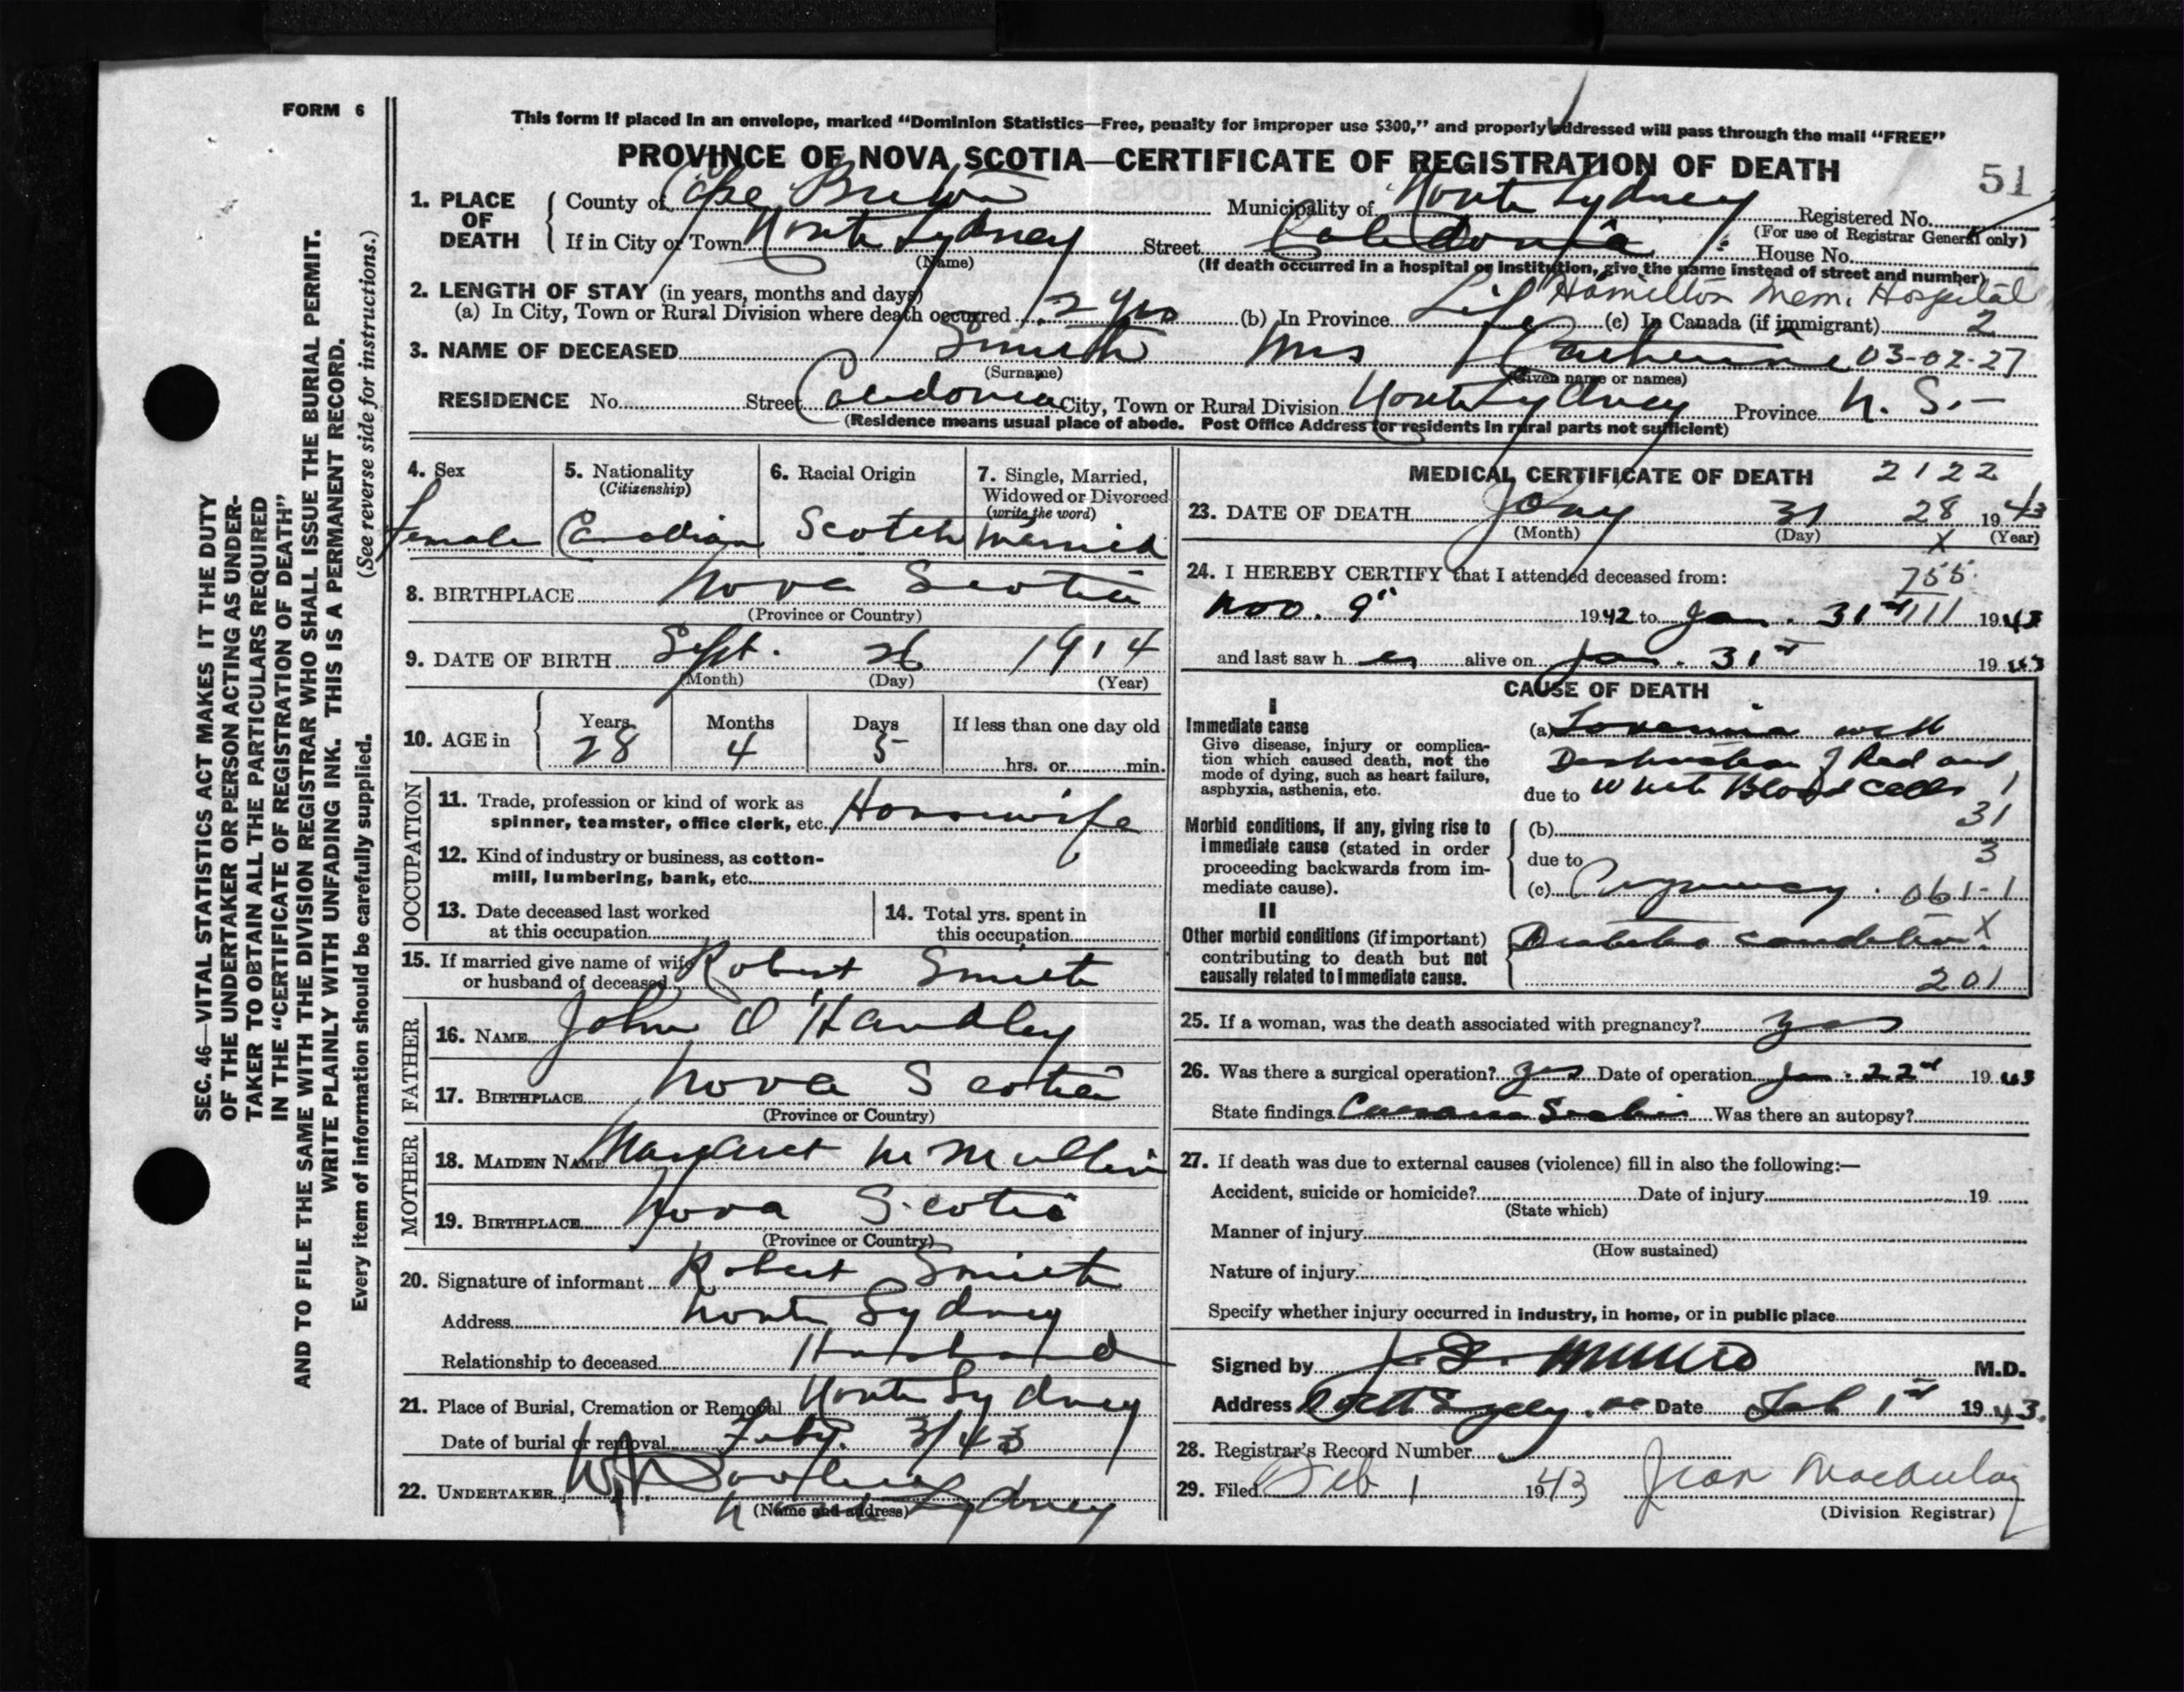 FORM 6
This form if placed in an envelope, marked "Dominion Statistics—Free, penalty for improper use $300," and properly addressed will pass through the mail "FREE"
PROVINCE OF NOVA SCOTIA—CERTIFICATE OF REGISTRATION OF DEATH
51
1. PLACE OF DEATH County of Cape Breton Municipality of North Sydney Registered No.
(For use of Registrar General only)
If in City or Town North Sydney Street Caledonia House No.
(Name) (If death occurred in a hospital or institution, give the name instead of street and number)
Hamilton Mem. Hospital
2. LENGTH OF STAY (in years, months and days)
(a) In City, Town or Rural Division where death occurred 12 yrs (b) In Province Life (c) In Canada (if immigrant) 2
3. NAME OF DECEASED Smith Mrs Catherine 03-02-27
(Surname) (Given name or names)
RESIDENCE No. Street Caledonia City, Town or Rural Division North Sydney Province N. S.
(Residence means usual place of abode. Post Office Address for residents in rural parts not sufficient)
4. Sex Female
5. Nationality (Citizenship) Canadian
6. Racial Origin Scotch
7. Single, Married, Widowed or Divorced (write the word) Married
8. BIRTHPLACE Nova Scotia
(Province or Country)
9. DATE OF BIRTH Sept. 26 1914
(Month) (Day) (Year)
10. AGE in Years 28 Months 4 Days 5 If less than one day old hrs. or min.
OCCUPATION
11. Trade, profession or kind of work as spinner, teamster, office clerk, etc. Housewife
12. Kind of industry or business, as cotton-mill, lumbering, bank, etc.
13. Date deceased last worked at this occupation
14. Total yrs. spent in this occupation
15. If married give name of wife or husband of deceased Robert Smith
FATHER
16. NAME John O'Handley
17. BIRTHPLACE Nova Scotia
(Province or Country)
MOTHER
18. MAIDEN NAME Margaret McMullin
19. BIRTHPLACE Nova Scotia
(Province or Country)
20. Signature of informant Robert Smith
Address North Sydney
Relationship to deceased Husband
21. Place of Burial, Cremation or Removal North Sydney
Date of burial or removal Feby. 3/43
22. UNDERTAKER
North Sydney
(Name and address)
MEDICAL CERTIFICATE OF DEATH 2122
23. DATE OF DEATH Jany 31 28 1943
(Month) (Day) X (Year)
24. I HEREBY CERTIFY that I attended deceased from: 755
Nov. 9" 1942 to Jan. 31st 111 1943
and last saw her alive on Jan. 31st 1943
CAUSE OF DEATH
I
Immediate cause
Give disease, injury or complication which caused death, not the mode of dying, such as heart failure, asphyxia, asthenia, etc.
(a) Toxaemia with
Destruction of Red and
due to White Blood Cells 1
31
Morbid conditions, if any, giving rise to immediate cause (stated in order proceeding backwards from immediate cause).
(b)
due to 3
(c) Pregnancy. 061-1
II
Other morbid conditions (if important) contributing to death but not causally related to immediate cause.
Diabetic condition X
201
25. If a woman, was the death associated with pregnancy? yes
26. Was there a surgical operation? yes Date of operation Jan. 22nd 1943
State findings Caesarean Section Was there an autopsy?
27. If death was due to external causes (violence) fill in also the following:—
Accident, suicide or homicide? Date of injury 19
(State which)
Manner of injury
(How sustained)
Nature of injury
Specify whether injury occurred in industry, in home, or in public place
Signed by Munro M.D.
Address Date Feb 1st 1943.
28. Registrar's Record Number
29. Filed Feb 1 1943 Jean MacAulay
(Division Registrar)
SEC. 46—VITAL STATISTICS ACT MAKES IT THE DUTY
OF THE UNDERTAKER OR PERSON ACTING AS UNDER-
TAKER TO OBTAIN ALL THE PARTICULARS REQUIRED
IN THE "CERTIFICATE OF REGISTRATION OF DEATH"
AND TO FILE THE SAME WITH THE DIVISION REGISTRAR WHO SHALL ISSUE THE BURIAL PERMIT.
WRITE PLAINLY WITH UNFADING INK. THIS IS A PERMANENT RECORD.
Every item of information should be carefully supplied. (See reverse side for instructions.)